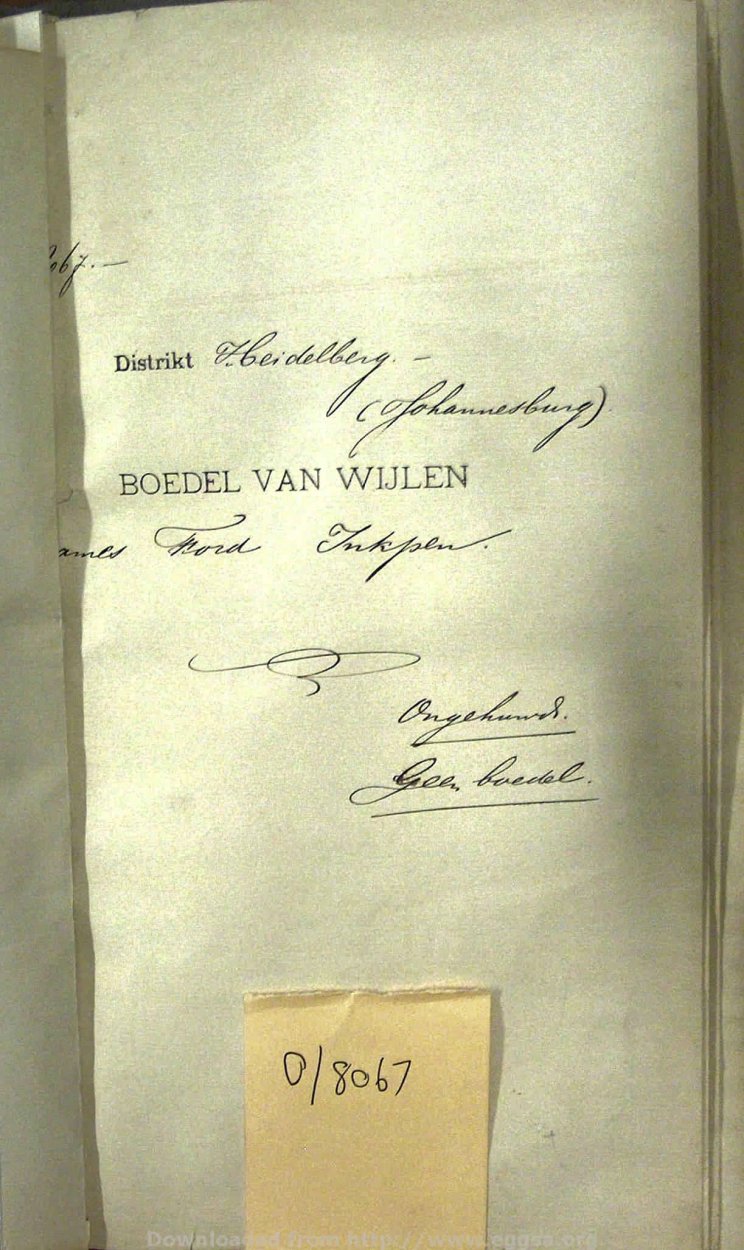 067. —
Distrikt Heidelberg. —
(Johannesburg)
BOEDEL VAN WIJLEN
ames Ford Inkpen.
Ongehuwd.
Geen boedel.
0/8067
Downloaded from http://www.eggsa.org